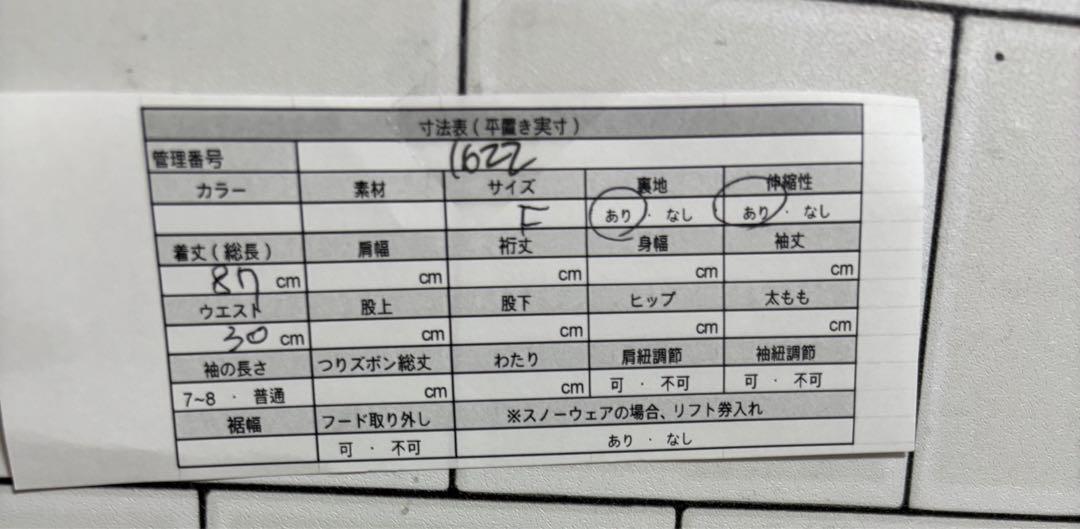 寸法表(平置き実寸)
管理番号 1622
カラー 素材 サイズ 裏地 伸縮性
F あり・なし あり・なし
着丈(総長) 肩幅 裄丈 身幅 袖丈
87 cm cm cm cm cm
ウエスト 股上 股下 ヒップ 太もも
30 cm cm cm cm cm
袖の長さ つりズボン総丈 わたり 肩紐調節 袖紐調節
7~8・普通 cm cm 可・不可 可・不可
裾幅 フード取り外し ※スノーウェアの場合、リフト券入れ
可・不可 あり・なし